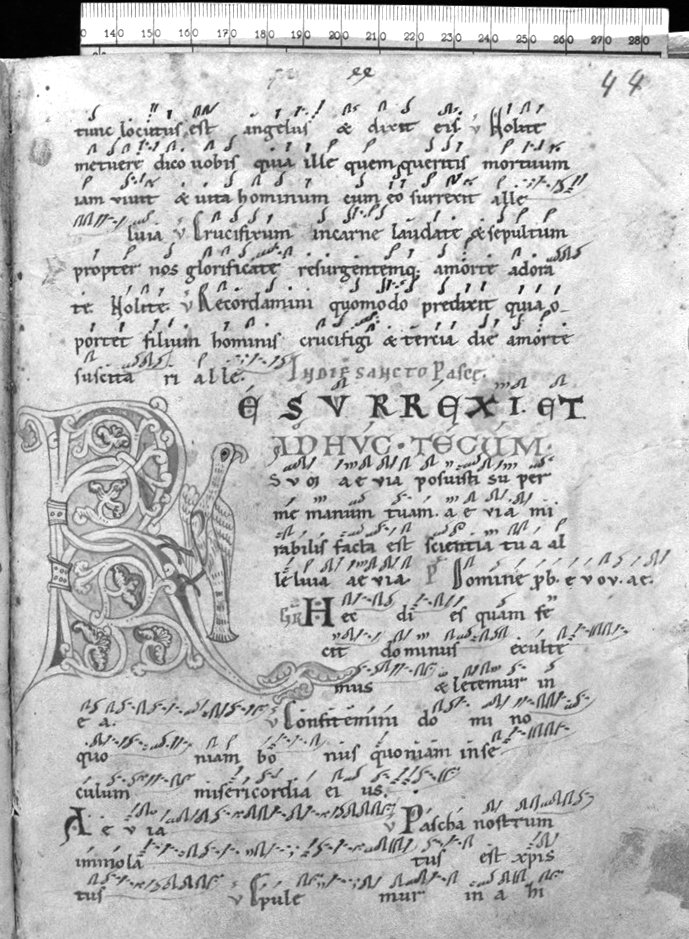 130 140 150 160 170 180 190 200 210 220 230 240 250 260 270 280
44
tunc locutus est angelus & dixit eis ℣ Nolite
metuere dico uobis quia ille quem queritis mortuum
iam uiuit & uita hominum cum eo surrexit alle
luia ℣ Crucifixum incarne laudate & sepultum
propter nos glorificate resurgentemq; amorte adora
te. Nolite. ℣ Recordamini quomodo predixit quia o
portet filium hominis crucifigi & tercia die amorte
suscita ri alle. IN DIE SANCTO Pasce.
ESVRREXI. ET
ADHVC TECUM
SVM aevia posuisti su per
me manum tuam. aevia mi
rabilis facta est scientia tua al
leluia aevia Domine pb. evovae.
GR Hec di es quam fe
cit dominus exulte
mus & letemur in
e a. ℣ Confitemini do mi no
quo niam bo nus quoniam inse
culum misericordia ei us.
Aevia ℣ Pascha nostrum
immola tus est xpis
tus ℣ Epule mur in a zi